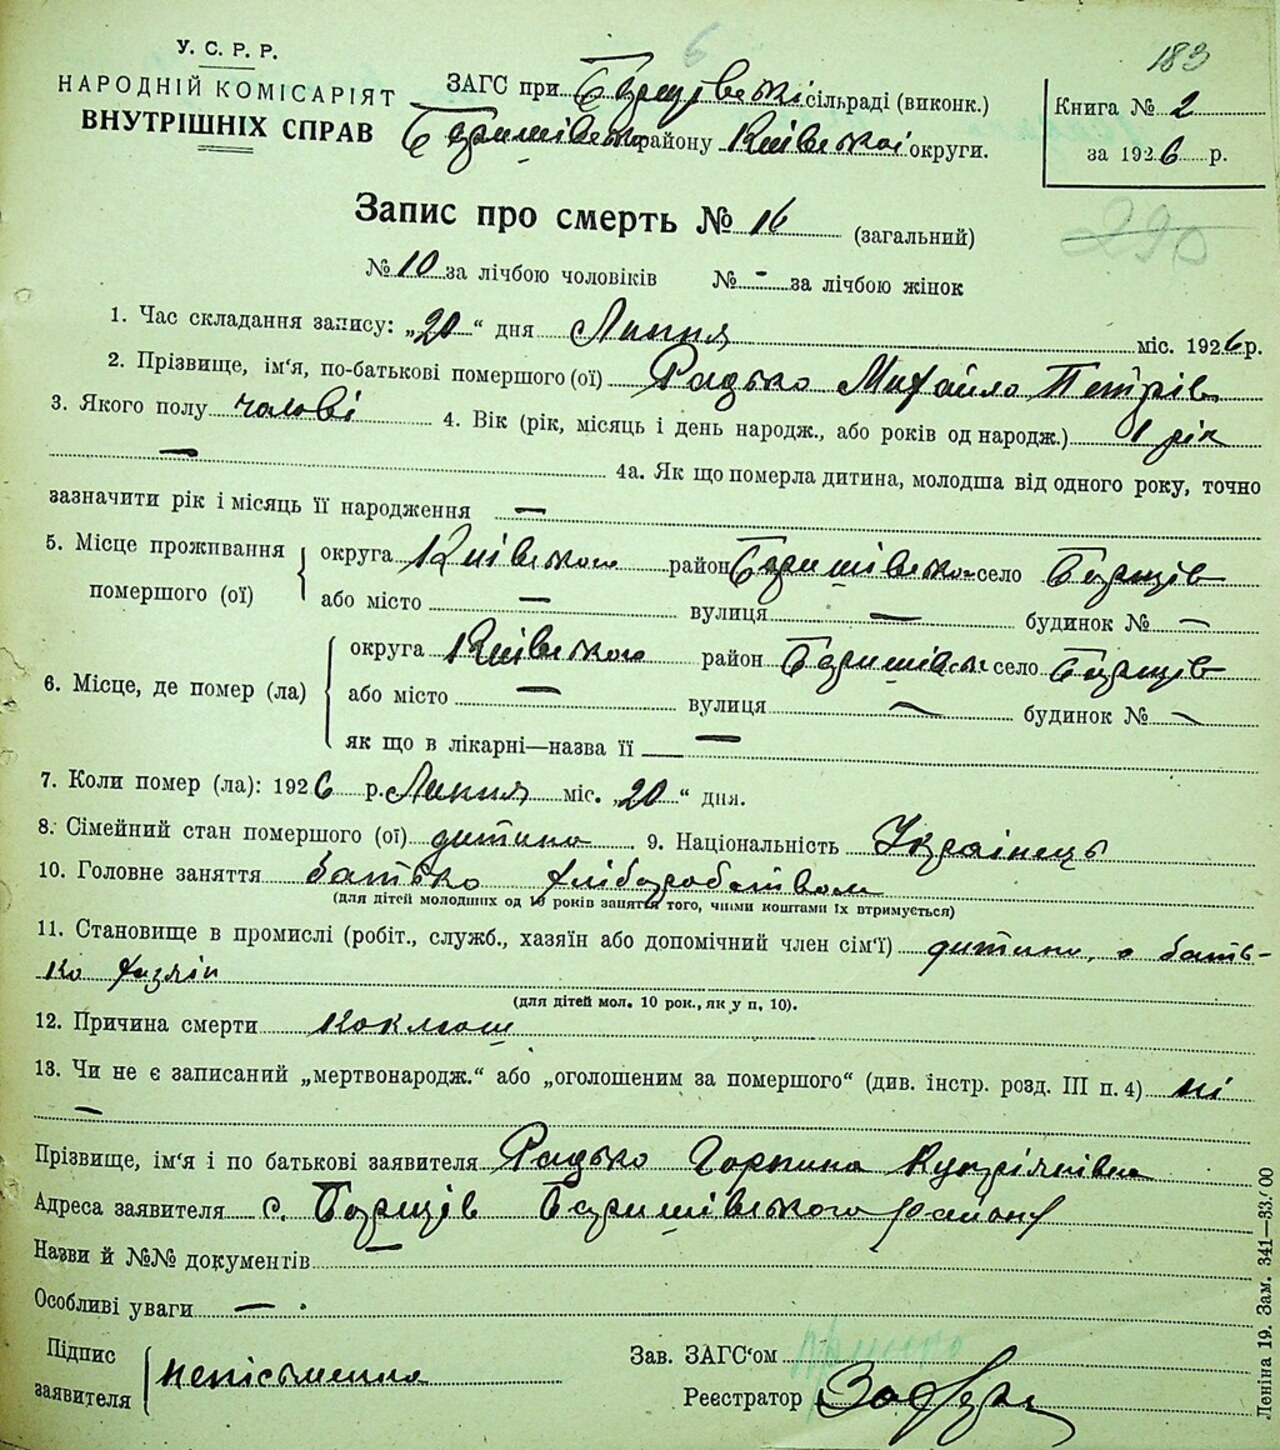 183
У. С. Р. Р.
НАРОДНІЙ КОМІСАРІЯТ
ВНУТРІШНІХ СПРАВ
ЗАГС при Борщівські сільраді (виконк.)
Баришівсько району Київської округи.
Книга № 2
за 1926 р.
290
Запис про смерть № 16 (загальний)
№ 10 за лічбою чоловіків № - за лічбою жінок
1. Час складання запису: „20“ дня Липня міс. 1926 р.
2. Прізвище, ім'я, по-батькові помершого (ої) Радько Михайло Петрів
3. Якого полу чолові 4. Вік (рік, місяць і день народж., або років од народж.) 1 рік
— 4а. Як що померла дитина, молодша від одного року, точно
зазначити рік і місяць її народження —
5. Місце проживання помершого (ої) округа Київсько район Баришівсько село Борщів
або місто — вулиця — будинок № —
6. Місце, де помер (ла) округа Київського район Баришівськ село Борщів
або місто — вулиця — будинок № —
як що в лікарні—назва її —
7. Коли помер (ла): 1926 р. Липня міс. „20“ дня.
8. Сімейний стан помершого (ої) дитина 9. Національність Українець
10. Головне заняття батько хліборобством
(для дітей молодших од 10 років заняття того, чиїми коштами їх втримується)
11. Становище в промислі (робіт., служб., хазяїн або допомічний член сім'ї) дитина, а бать-
ко хазяін
(для дітей мол. 10 рок., як у п. 10).
12. Причина смерти коклюш
13. Чи не є записаний „мертвонародж.“ або „оголошеним за помершого“ (див. інстр. розд. III п. 4) ні
—
Прізвище, ім'я і по батькові заявителя Радько Горпина Купріянівна
Адреса заявителя с. Борщів Баришівського району
Назви й №№ документів —
Особливі уваги — .
Підпис заявителя неписьменна
Зав. ЗАГС'ом
Реєстратор
Леніна 19. Зам. 341—33/00